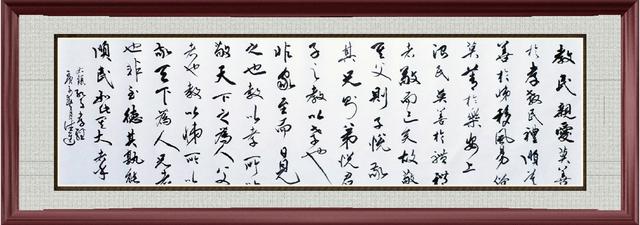 教民親愛莫善
於孝教民禮順莫
善於悌移風易俗
莫善於樂安上
治民莫善於禮禮
者敬而已矣故敬
其父則子悅敬
其兄則弟悅君
子之教以孝也
非家至而日見
之也教以孝所以
敬天下之為人父
者也教以悌所以
敬天下為人兄者
也非至德其孰能
順民如此其大者乎